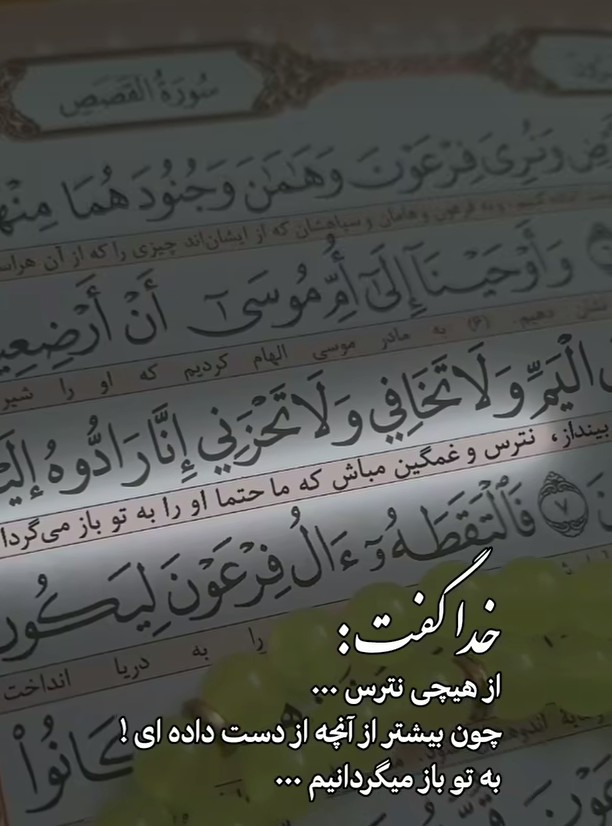 سُورَةُ الْقَصَصِ
وَنُرِيَ فِرْعَوْنَ وَهَامَانَ وَجُنُودَهُمَا مِنْهُ
و به فرعون و هامان و سپاهشان که از ایشان‌اند چیزی را که از آن هراس
وَأَوْحَيْنَا إِلَىٰ أُمِّ مُوسَىٰ أَنْ أَرْضِعِي
نشان دهیم. (۶) به مادر موسی الهام کردیم که او را شیر
الْيَمِّ وَلَا تَخَافِي وَلَا تَحْزَنِي إِنَّا رَادُّوهُ إِلَيْ
بینداز، نترس و غمگین مباش که ما حتما او را به تو باز می‌گردا
۷ فَالْتَقَطَهُ ءَالُ فِرْعَوْنَ لِيَكُونَ
را به دریا انداخت
كَانُوا
خدا گفت:
از هیچی نترس ...
چون بیشتر از آنچه از دست داده ای !
به تو باز میگردانیم ...